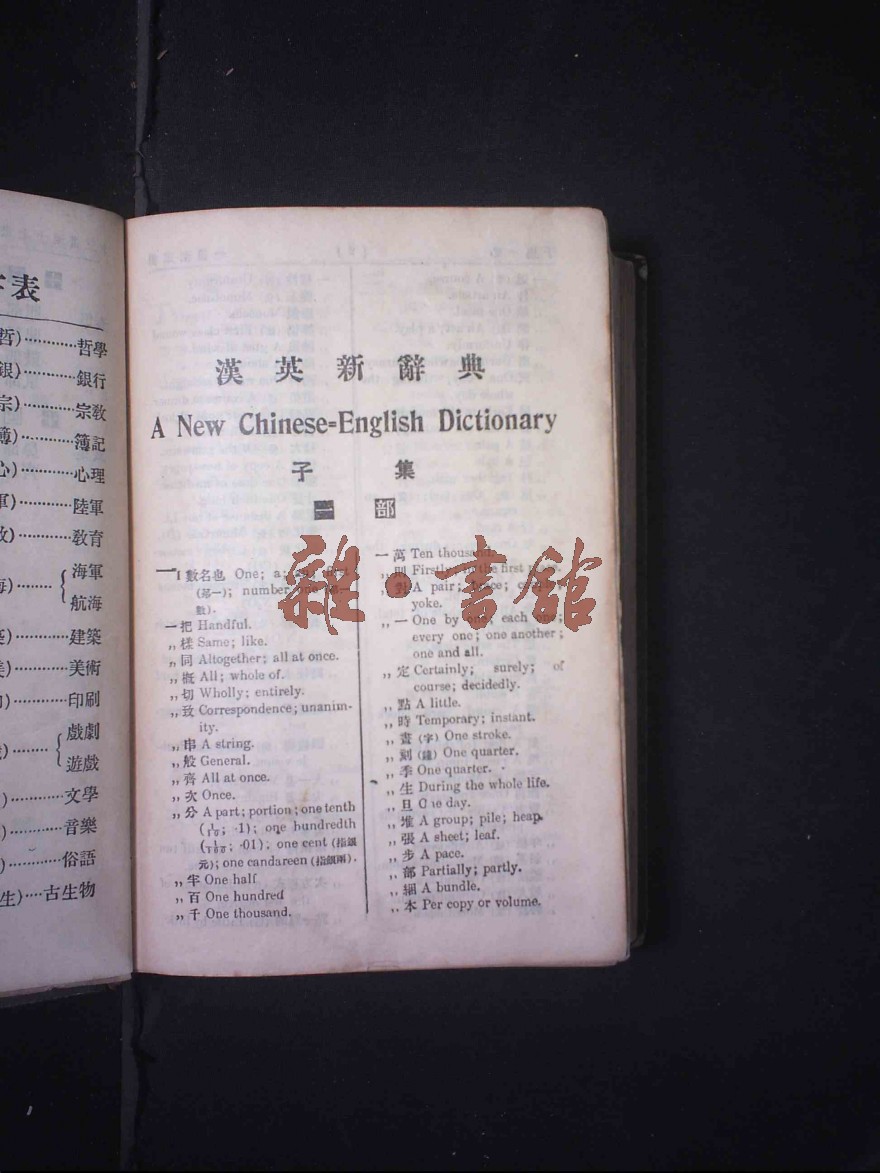 表
哲學
銀行
宗教
簿記
心理
陸軍
教育
海軍
航海
建築
美術
印刷
戲劇
遊戲
文學
音樂
俗語
生)····古生物
漢英新辭典
A New Chinese=English Dictionary
子集
一部
一 數名也 One; a;
(第一); number one (第一
數).
一把 Handful.
,,樣 Same; like.
,,同 Altogether; all at once.
,,概 All; whole of.
,,切 Wholly; entirely.
,,致 Correspondence; unanim-
ity.
,,串 A string.
,,般 General.
,,齊 All at once.
,,次 Once.
,,分 A part; portion; one tenth
(1/10; ·1); one hundredth
(1/100; ·01); one cent (指銀
元); one candareen (指銀兩).
,,半 One half
,,百 One hundred
,,千 One thousand.
一萬 Ten thousand.
,,則 Firstly; in the first place.
,,對 A pair; brace;
yoke.
,,一 One by one; each one;
every one; one another;
one and all.
,,定 Certainly; surely; of
course; decidedly.
,,點 A little.
,,時 Temporary; instant.
,,畫 (字) One stroke.
,,刻 (鐘) One quarter.
,,季 One quarter.
,,生 During the whole life.
,,旦 One day.
,,堆 A group; pile; heap.
,,張 A sheet; leaf.
,,步 A pace.
,,部 Partially; partly.
,,綑 A bundle.
,,本 Per copy or volume.
雜·書館